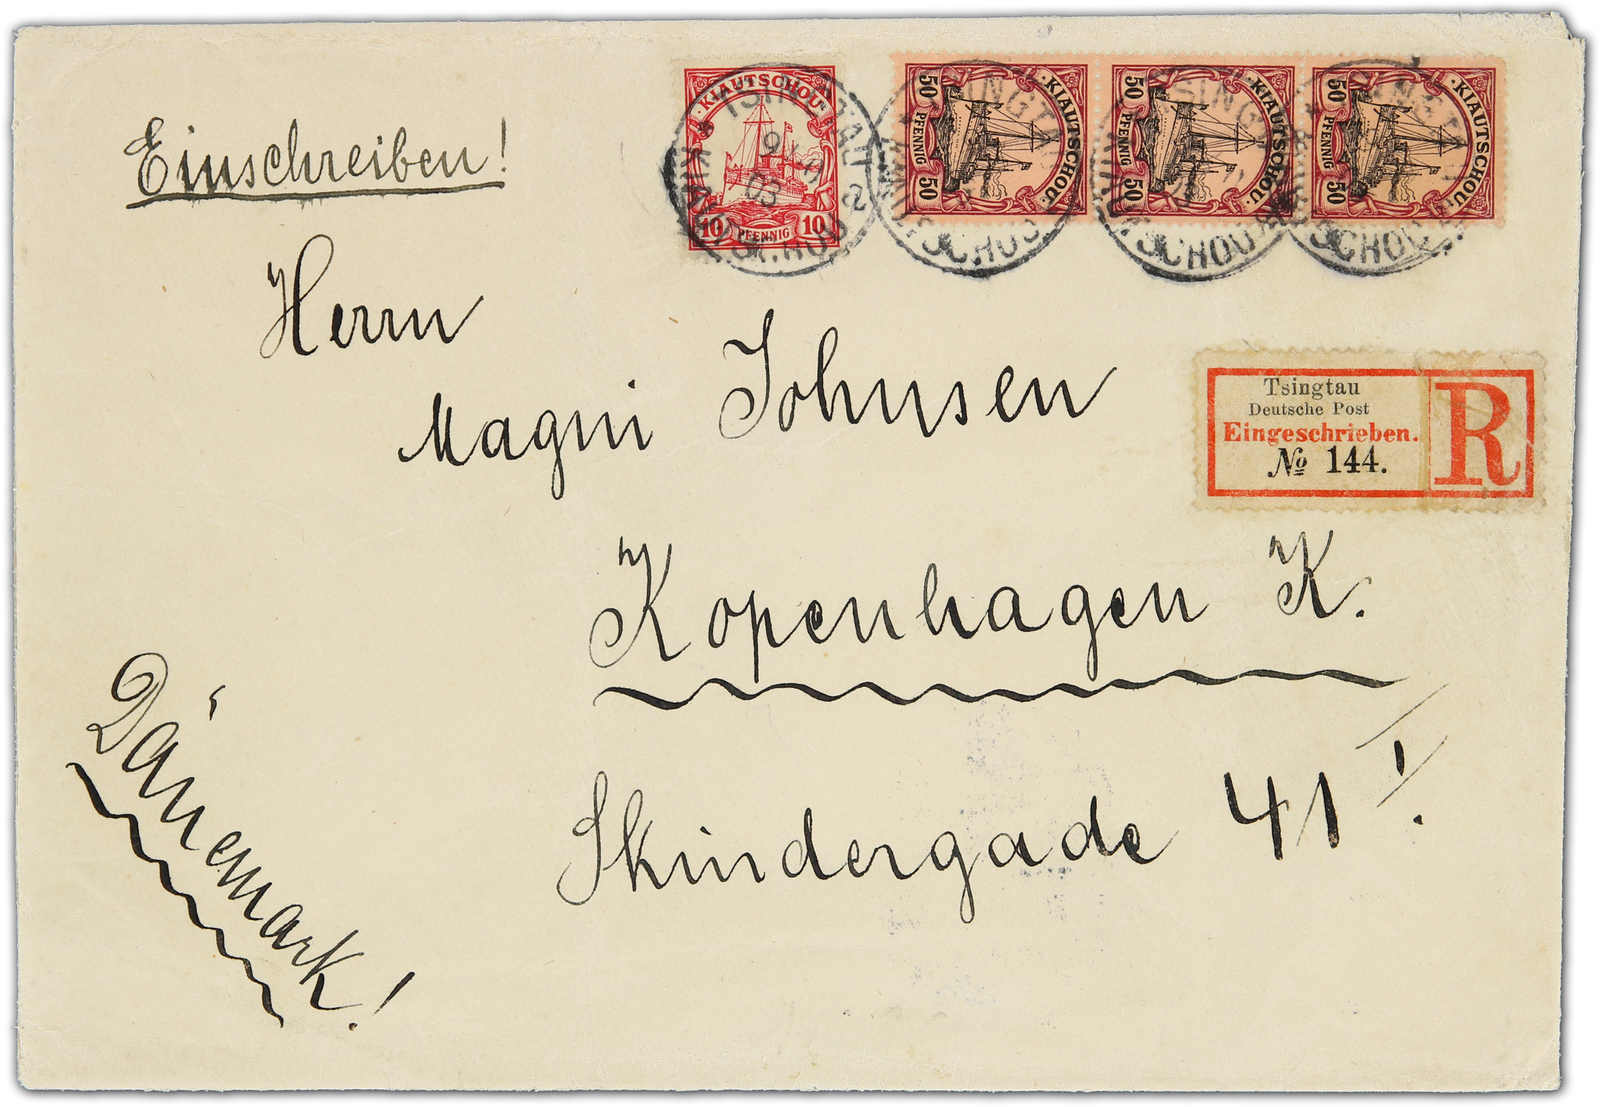 Einschreiben!
KIAUTSCHOU
10 PFENNIG 10
KIAUTSCHOU.
50 PFENNIG 50
KIAUTSCHOU.
50 PFENNIG 50
KIAUTSCHOU.
50 PFENNIG 50
TSINGTAU
03
KIAUTSCHOU
Herrn
Magni Johnsen
Tsingtau
Deutsche Post
Eingeschrieben.
№ 144.
R
Kopenhagen K.
Skindergade 41 I.
Dänemark!